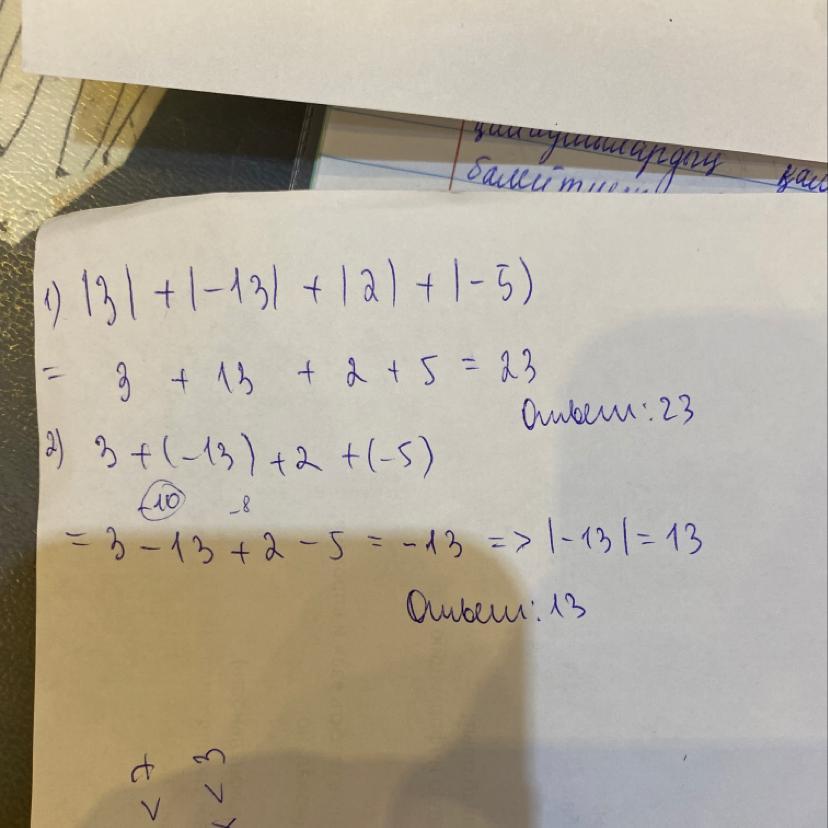 қалаушылардың қал
1) |3| + |-13| + |2| + |-5)
= 3 + 13 + 2 + 5 = 23
Ответ: 23
2) 3 + (-13) + 2 + (-5)
-10 -8
= 3 - 13 + 2 - 5 = -13 => |-13| = 13
Ответ: 13
< 7
< 3